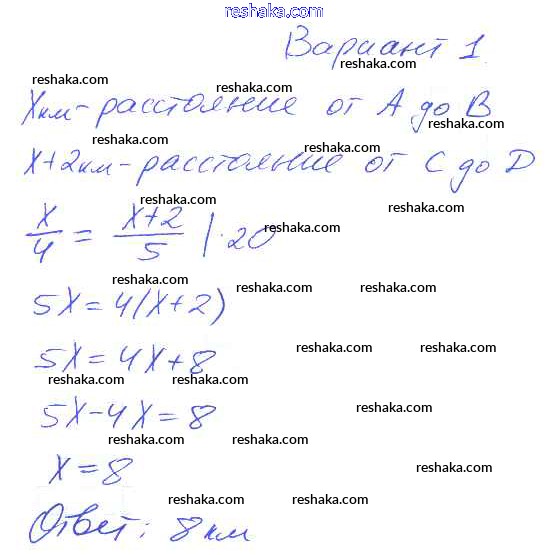 www.reshaka.com
Вариант 1
reshaka.com reshaka.com
Xкм - расстояние от A до B
reshaka.com reshaka.com
X+2км - расстояние от C до D
reshaka.com reshaka.com
x/4 = x+2/5 |·20
reshaka.com reshaka.com
reshaka.com reshaka.com reshaka.com
5X = 4(X+2)
5X = 4X+8
reshaka.com reshaka.com
reshaka.com reshaka.com
5X-4X=8
reshaka.com
reshaka.com reshaka.com
X=8
reshaka.com
reshaka.com reshaka.com reshaka.com
Ответ: 8 км